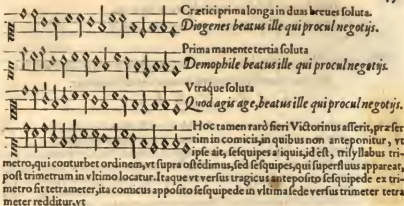 Crætici prima longa in duas breues soluta.
Diogenes beatus ille qui procul negotijs.
Prima manente tertia soluta
Demophile beatus ille qui procul negotijs.
Vtraque soluta
Quod agis age, beatus ille qui procul negotijs.
Hoc tamen rarò fieri Victorinus asserit, præser
tim in comicis, in quibus non anteponitur, vt
ipse ait, sesquipes aliquis, id est, trisyllabus tri-
metro, qui conturbet ordinem, vt supra ostēdimus, sed sesquipes, qui superfluus appareat,
post trimetrum in vltimo locatur. Itaque vt versus tragicus anteposito sesquipede ex tri-
metro fit tetrameter, ita comicus apposito sesquipede in vltima sede versus trimeter tetra
meter redditur, vt